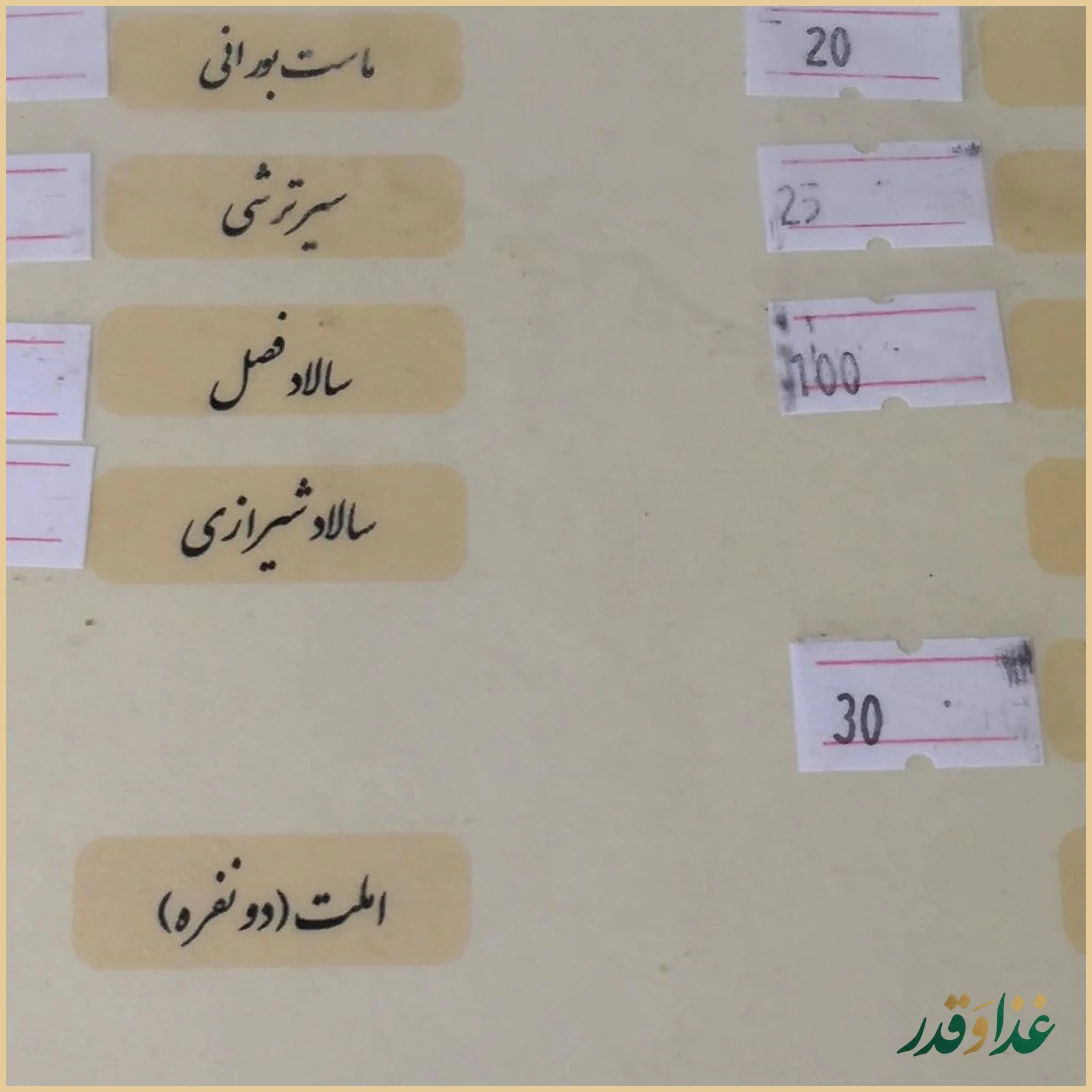 ماست بورانی
20
سیر ترشی
25
سالاد فصل
100
سالاد شیرازی
30
املت (دو نفره)
غذا و قدر